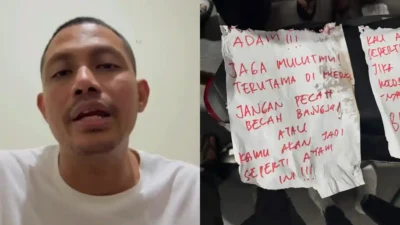 ADAM !!!
JAGA MULUTMU
TERUTAMA DI
JANGAN PECAH
BELAH BANGSA
ATAU
KAMU AKAN JADI
SEPERTI AYAM
INI !!!
KAU A
SEPERTI
JIKA